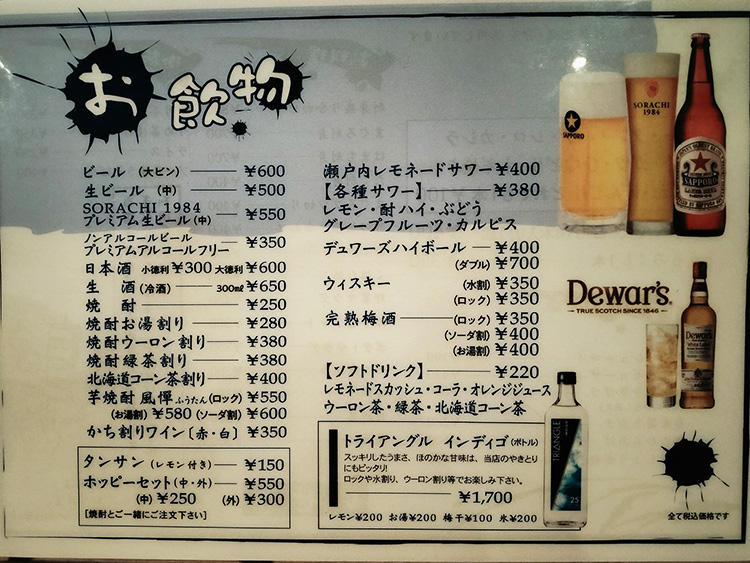 お飲物
ビール (大ビン) ¥600
生ビール (中) ¥500
SORACHI 1984
プレミアム生ビール(中) ¥550
ノンアルコールビール
プレミアムアルコールフリー ¥350
日本酒 小徳利 ¥300 大徳利 ¥600
生酒 (冷酒) 300mℓ ¥650
焼酎 ¥250
焼酎お湯割り ¥280
焼酎ウーロン割り ¥380
焼酎緑茶割り ¥380
北海道コーン茶割り ¥400
芋焼酎 風憚 ふうたん (ロック) ¥550
(お湯割) ¥580 (ソーダ割) ¥600
かち割りワイン〔赤・白〕 ¥350
タンサン (レモン付き) ¥150
ホッピーセット(中・外) ¥550
(中) ¥250 (外) ¥300
[焼酎とご一緒にご注文下さい]
瀬戸内レモネードサワー ¥400
【各種サワー】 ¥380
レモン・酎ハイ・ぶどう
グレープフルーツ・カルピス
デュワーズハイボール ¥400
(ダブル) ¥700
ウィスキー (水割) ¥350
(ロック) ¥350
完熟梅酒 (ロック) ¥350
(ソーダ割) ¥400
(お湯割) ¥400
【ソフトドリンク】 ¥220
レモネードスカッシュ・コーラ・オレンジジュース
ウーロン茶・緑茶・北海道コーン茶
トライアングル インディゴ (ボトル)
スッキリしたうまさ、ほのかな甘味は、当店のやきとり
にもピッタリ!
ロックや水割り、ウーロン割り等でお楽しみ下さい。
¥1,700
レモン¥200 お湯¥200 梅干¥100 氷¥200
SAPPORO
SORACHI
1984
SAPPORO
LAGER BEER
Dewar's
TRUE SCOTCH SINCE 1846
Dewar's
White Label
TRIANGLE
25
全て税込価格です